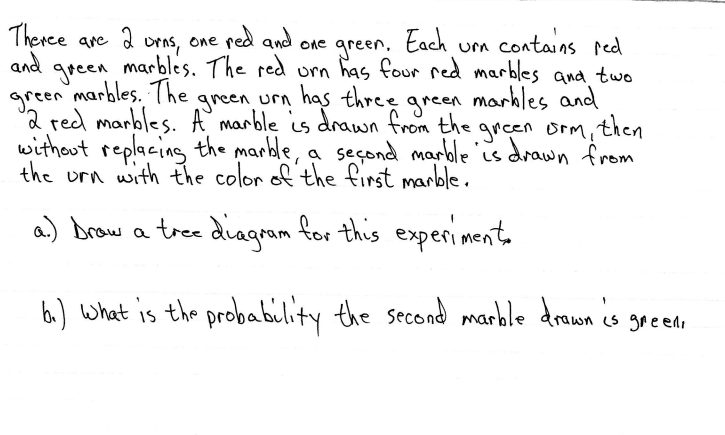 Therce are 2 urns, one red and one green. Each urn contains red
and green marbles. The red urn has four red marbles and two
green marbles. The green urn has three green marbles and
2 red marbles. A marble is drawn from the green urm, then
without replacing the marble, a second marble is drawn from
the urn with the color of the first marble.
a.) Draw a tree diagram for this experiment.
b.) What is the probability the second marble drawn is green.